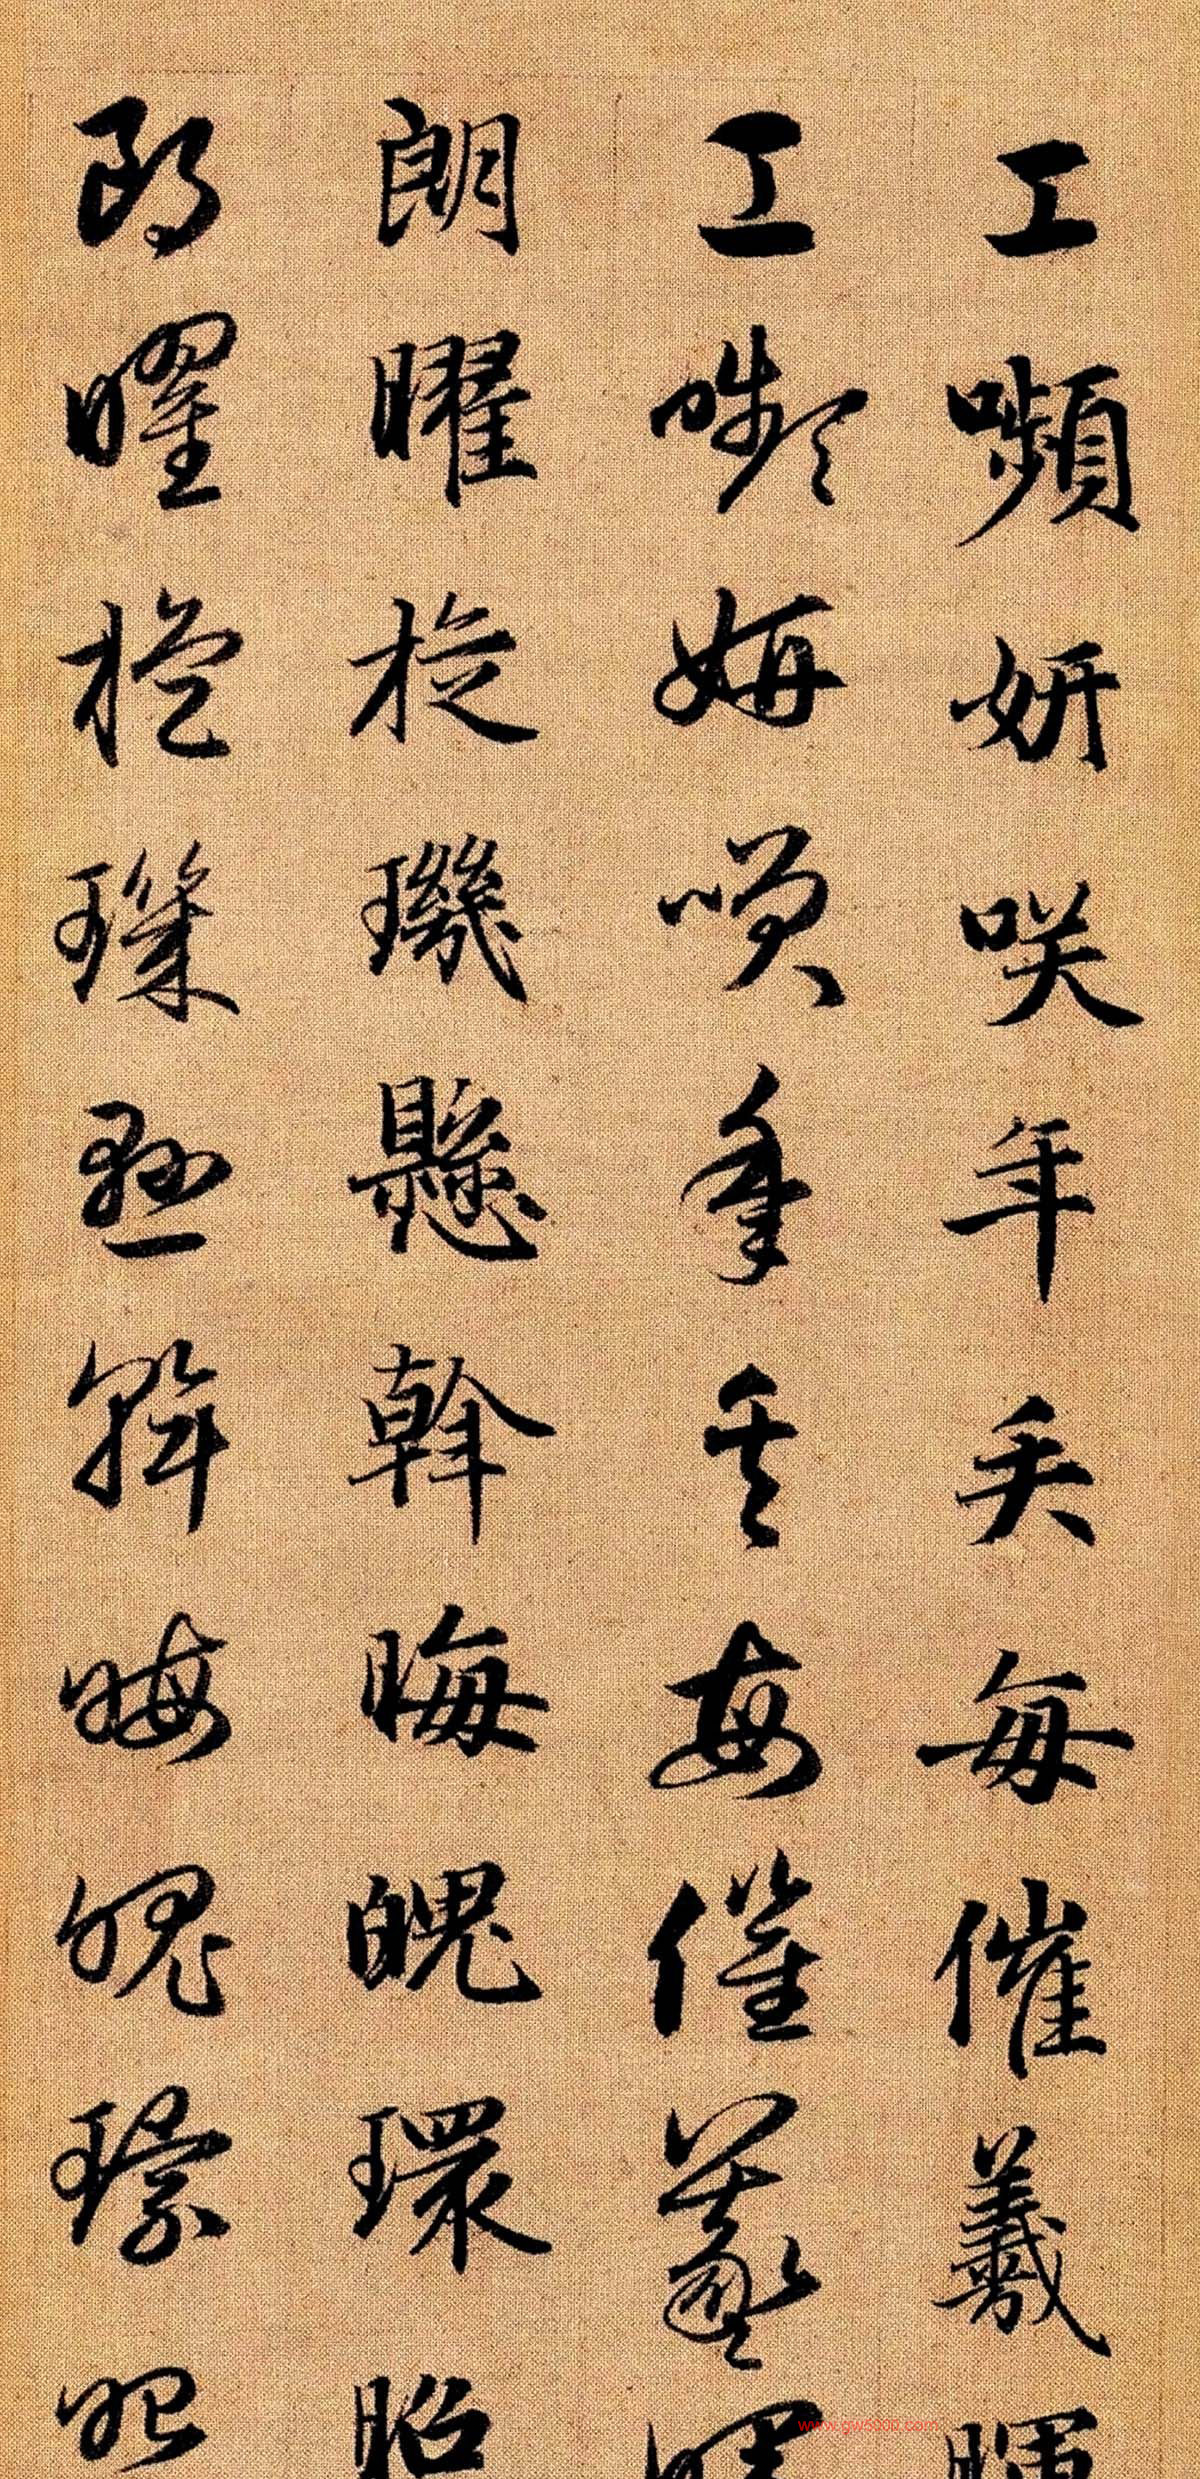 工嚬妍咲年矢每催羲暉
工嚬妍咲年矢每催羲暉
朗曜旋璣懸斡晦魄環照
朗曜旋璣懸斡晦魄環照
www.gw5000.com